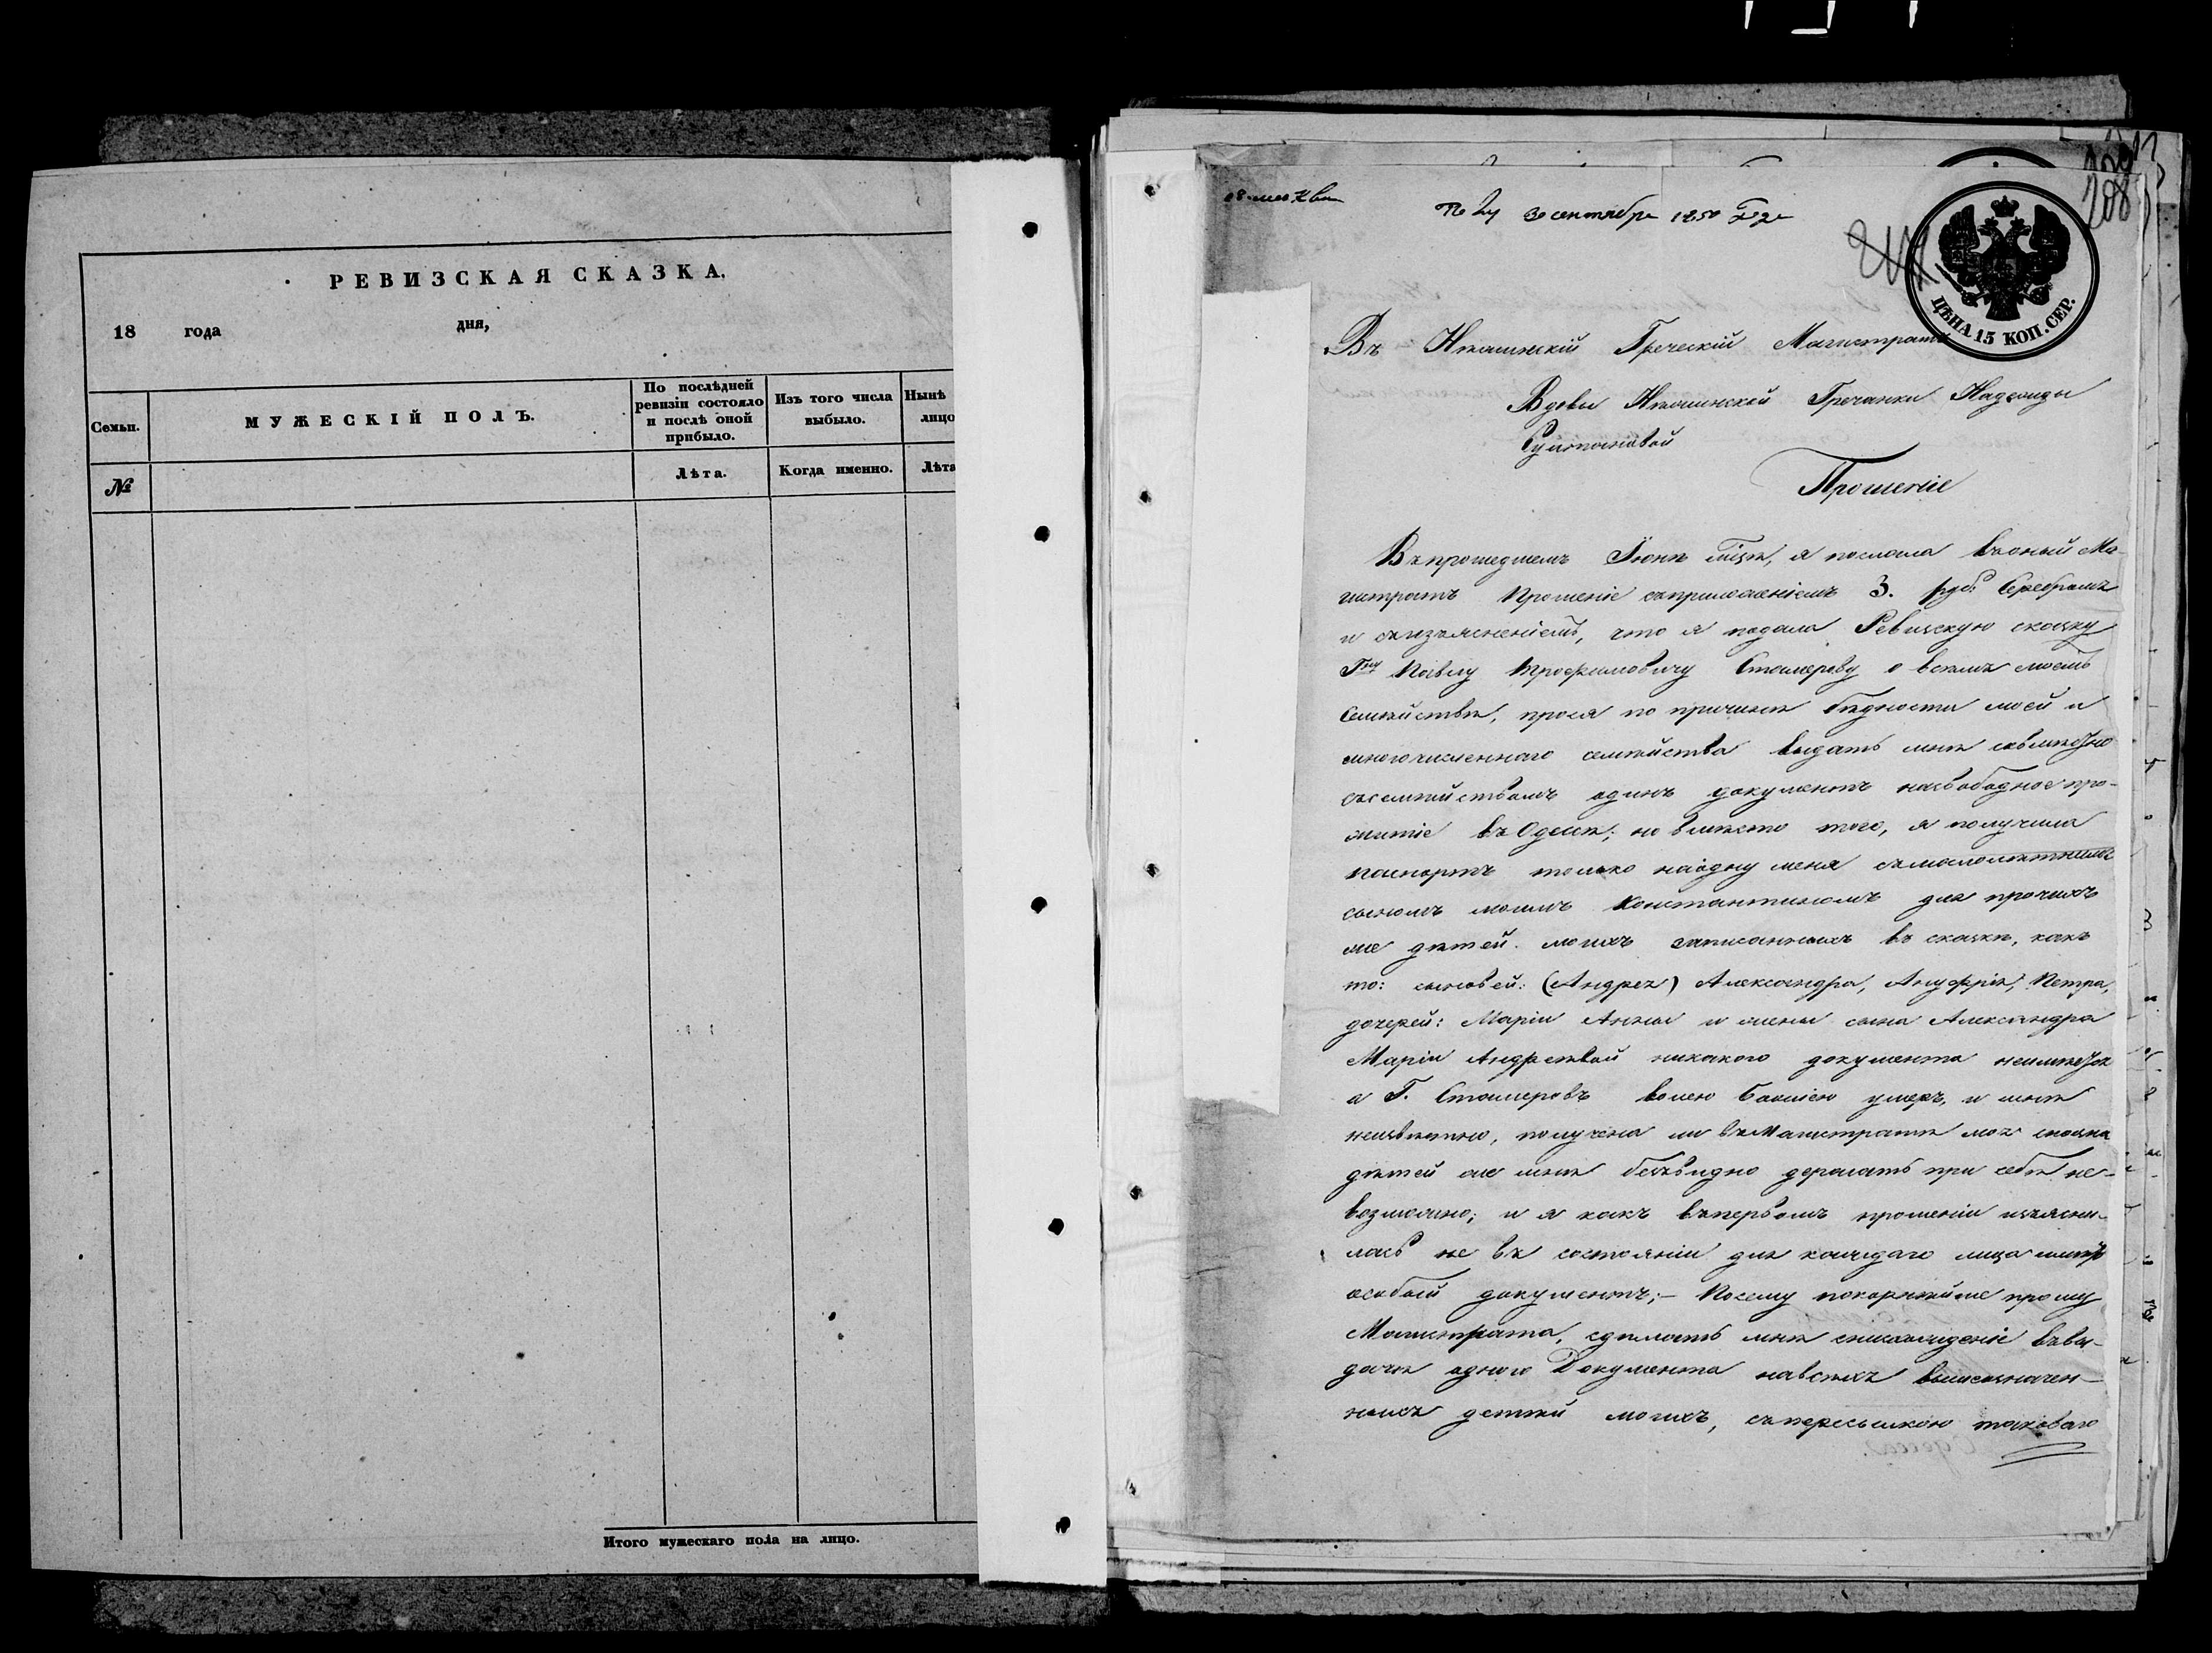 РЕВИЗСКАЯ СКАЗКА.
18 года дня,
Семьи.
МУЖЕСКІЙ ПОЛЪ.
По послѣдней
ревизіи состояло
и послѣ оной
прибыло.
Изъ того числа
выбыло.
Нынѣ
лицо
№
Лѣта.
Когда именно.
Лѣта
Итого мужескаго пола на лицо.
208
30 сентября 1850 Года
ЦѢНА 15 КОП. СЕР.
Въ Нѣжинскій Греческій Магистратъ
Вдовы Нѣжинской Гречанки Надежды
Султановой
Прошеніе
Въ прошедшемъ Іюнѣ м-цѣ, я послала въ оный Ма-
гистратъ Прошеніе съ приложеніемъ 3. руб. Серебромъ
и съ изъясненіемъ, что я подала Ревизскую сказку
Г-ну Павлу Трофимовичу Стамерову о всемъ моемъ
Семѣйствѣ, прося по причинѣ бѣдности моей и
многочисленнаго семѣйства выдать мнѣ совмѣстно
съ семѣйствомъ одинъ документъ на свободное про-
житіе въ Одессѣ; но вмѣсто того, я получила
паспортъ только на одну меня съ малолѣтнимъ
сыномъ моимъ Константиномъ для прочихъ
же дѣтей моихъ записанныхъ въ сказкѣ, какъ
то: сыновей: (Андрея) Александра, Ануфрія, Петра,
дочерей: Маріи Анны и жены сына Александра
Маріи Андреевой никакого документа неимѣется
а Г. Стамеровъ волею Божіею умеръ, и мнѣ
неизвѣстно, получена ли въ Магистратѣ моя сказка
дѣтей же мнѣ безъвидно держать при себѣ не-
возможно; и я какъ въ первомъ прошеніи изъясни-
лась не въ состояніи для каждаго лица имѣть
особый документъ;– Посему покорнѣйше прошу
Магистрата, сдѣлать мнѣ снисхожденіе въ вы-
дачи одного Документа на всѣхъ вышеозначен-
ныхъ детѣй моихъ, съ пересылкою таковаго